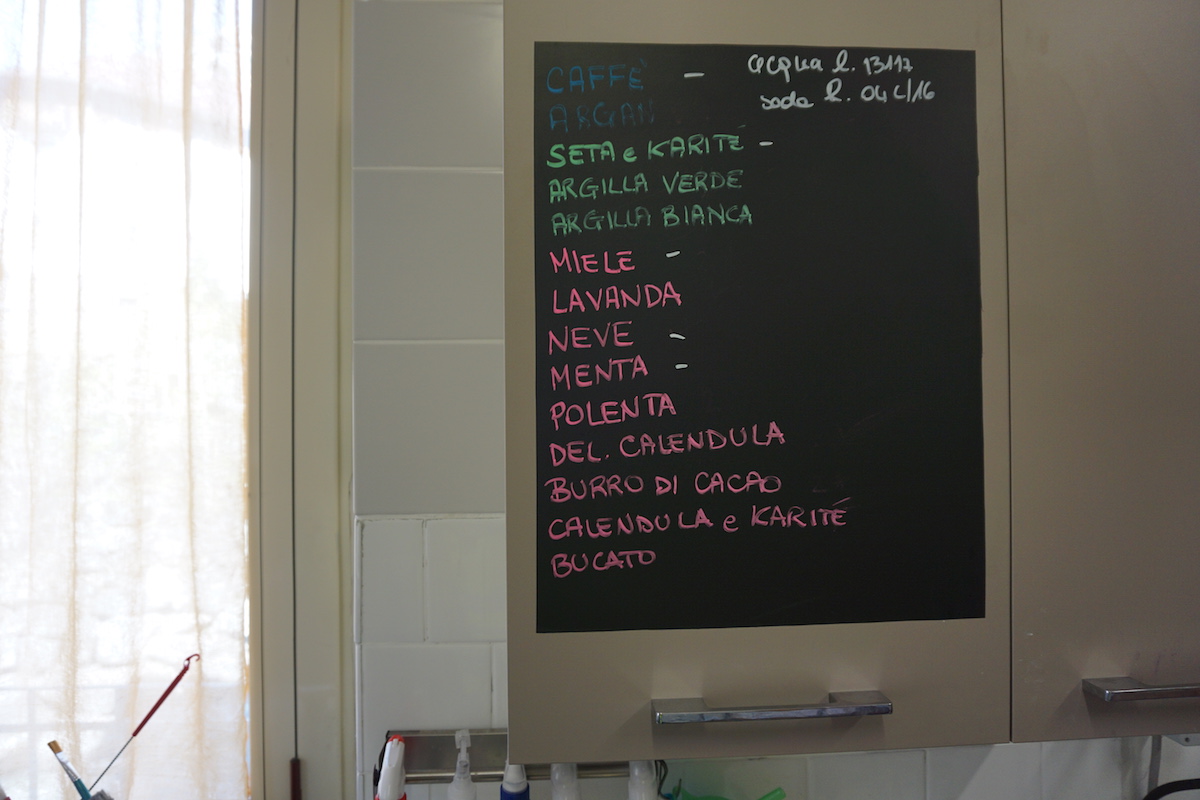 CAFFÈ -
acqua l. 13117
soda l. 04 L/16
ARGAN
SETA e KARITÉ -
ARGILLA VERDE
ARGILLA BIANCA
MIELE -
LAVANDA
NEVE -
MENTA -
POLENTA
DEL. CALENDULA
BURRO DI CACAO
CALENDULA e KARITÉ
BUCATO